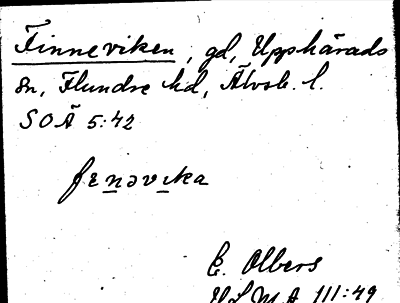 Finneviken, gd, Upphärads
sn, Flundre hd, Älvsb. l.
SOÄ 5:42
fenəvika
E. Olbers
VLMA 111:49